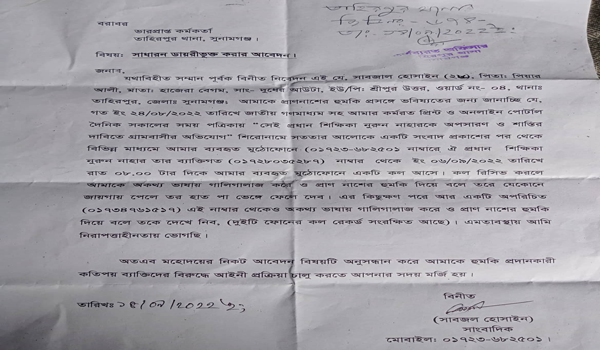 তাহিরপুর থানা
জিডি নং- ৬৭৪
তাং- /০৯/২০২২ ইং
বরাবর
ভারপ্রাপ্ত কর্মকর্তা
তাহিরপুর থানা, সুনামগঞ্জ।
বিষয়: সাধারন ডায়রীভুক্ত করার আবেদন।
জনাব,
যথাবিহীত সম্মান পূর্বক বিনীত নিবেদন এই যে, সাবজাল হোসাইন, পিতা: পিয়ার
আলী, মাতা: হাজেরা বেগম, সাং- দুধের আউটা, ইউ/পি: শ্রীপুর উত্তর, ওয়ার্ড নং- ০৪, থানাঃ
তাহিরপুর, জেলাঃ সুনামগঞ্জ। আমাকে প্রাণনাশের হুমকি প্রসঙ্গে ভবিষ্যতের জন্য জানাচ্ছি যে,
গত ইং ২৪/০৮/২০২২ তারিখে জাতীয় গণমাধ্যম সহ আমার কর্মরত প্রিন্ট ও অনলাইন পোর্টাল
দৈনিক সকালের সময় পত্রিকায় "সেই প্রধান শিক্ষিকা নুরুন নাহারকে অপসারণ ও শাস্তির
দাবিতে গ্রামবাসীর অভিযোগ" শিরোনামে সততার আলোকে একটি সংবাদ প্রকাশের পর থেকে
বিভিন্ন মাধ্যমে আমার ব্যবহৃত মুঠোফোনে (০১৭২৩-৬৮২৫০১) নাম্বারে ঐ প্রধান শিক্ষিকা
নুরুন নাহার তার ব্যাক্তিগত (০১৭২৮০৩৫২৮৭) নাম্বার থেকে ইং ০৬/০৯/২০২২ তারিখে
রাত ০৮.০০ টার দিকে আমার ব্যবহৃত মুঠোফোনে একটি কল আসে। কল রিসিভ করলে
আমাকে অকথ্য ভাষায় গালিগালাজ করে ও প্রাণ নাশের হুমকি দিয়ে বলে তরে যেকোনে
জায়গায় পেলে তর হাত পা ভেঙ্গে ফেলে দেব। এর কিছুক্ষণ পরে আর একটি অপরিচিত
(০১৭৩৪৭৬১৫১৭) এই নাম্বার থেকেও অকথ্য ভাষায় গালিগালাজ করে ও প্রাণ নাশের হুমকি
দিয়ে বলে তকে দেখে নিব, (দুইটি ফোনের কল রেকর্ড সংরক্ষিত আছে)। এমতাবস্থায় আমি
নিরাপত্তাহীনতায় ভোগছি।
অতএব মহোদয়ের নিকট আবেদন বিষয়টি অনুসন্ধান করে আমাকে হুমকি প্রদানকারী
কতিপয় ব্যাক্তিদের বিরুদ্ধে আইনী প্রক্রিয়া চালু করতে আপনার সদয় মর্জি হয়।
বিনীত
তারিখঃ ১৪/০৯/২০২২ ইং
(সাবজল হোসাইন)
সাংবাদিক
মোবাইল: ০১৭২৩-৬৮২৫০১।